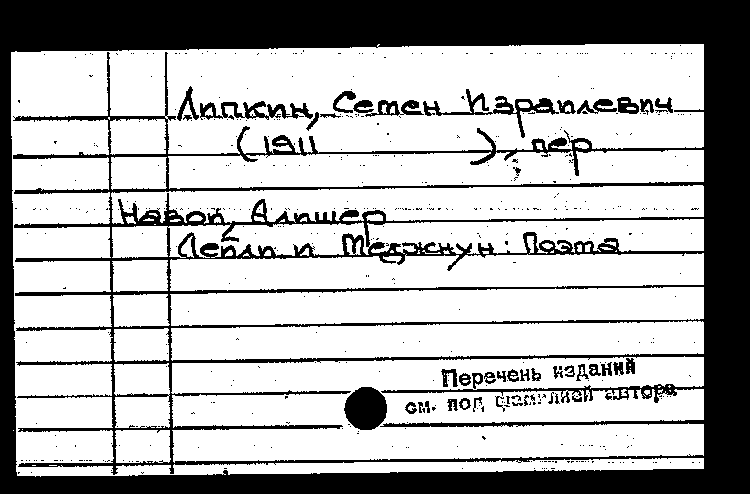 Липкин, Семен Израилевич
(1911 ), пер.
Навои, Алишер
Лейли и Меджнун: Поэма
Перечень изданий
см. под фамилией автора